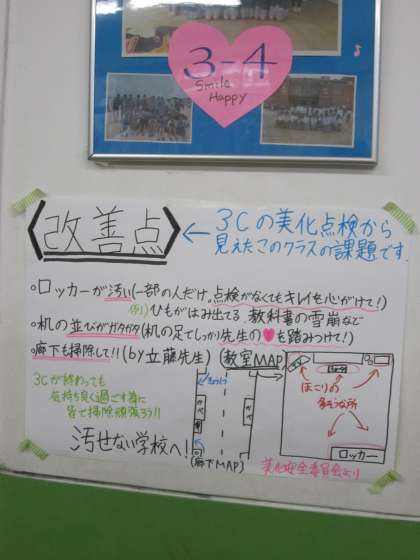 3-4
Smile
Happy
〈改善点〉
← 3Cの美化点検から
見えたこのクラスの課題です。
◦ロッカーが汚い(一部の人だけ。点検がなくてもキレイを心がけて!)
例)ひもがはみ出てる、教科書の雪崩など
◦机の並びがガタガタ(机の足でしっかり先生の♥を踏みつけて!)
◦廊下も掃除して!!(by立藤先生)
(教室MAP)
ほこりの
多そうな所
ロッカー
3Cが終わっても
気持ち良く過ごす為に
皆で掃除頑張ろう!!
汚せない学校へ!
(廊下MAP)
美化安全委員会より